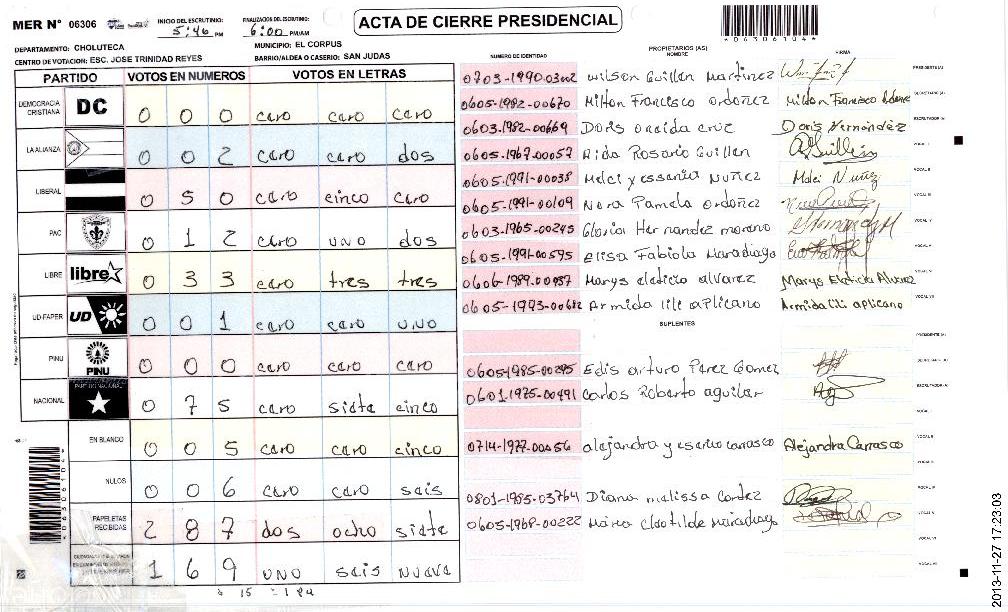 MER N° 06306
INICIO DEL ESCRUTINIO: 5:46 PM
FINALIZACION DEL ESCRUTINIO: 6:00 PM/AM
ACTA DE CIERRE PRESIDENCIAL
*06306104*
DEPARTAMENTO: CHOLUTECA
MUNICIPIO: EL CORPUS
CENTRO DE VOTACION: ESC. JOSE TRINIDAD REYES
BARRIO/ALDEA O CASERIO: SAN JUDAS
PARTIDO VOTOS EN NUMEROS VOTOS EN LETRAS
DEMOCRACIA CRISTIANA DC 0 0 0 cero cero cero
LA ALIANZA 0 0 2 cero cero dos
LIBERAL 0 5 0 cero cinco cero
PAC 0 1 2 cero uno dos
LIBRE libre 0 3 3 cero tres tres
UD-FAPER UD 0 0 1 cero cero uno
PINU PINU 0 0 0 cero cero cero
NACIONAL PARTIDO NACIONAL 0 7 5 cero siete cinco
EN BLANCO 0 0 5 cero cero cinco
NULOS 0 0 6 cero cero seis
PAPELETAS RECIBIDAS 2 8 7 dos ocho siete
1 6 9 uno seis nueve
NUMERO DE IDENTIDAD PROPIETARIOS (AS) NOMBRE FIRMA
0703-1990-03202 Wilson Guillen Martinez PRESIDENTE(A)
0605-1982-00670 Milton Francisco Ordoñez Milton Francisco SECRETARIO (A)
0603-1982-00669 Doris oneida cruz Doris Hernández ESCRUTADOR (A)
0605-1967-00057 Aida Rosario Guillen VOCAL I
0605-1991-00038 Melci yessenia Nuñez Melci Nuñez VOCAL II
0605-1991-00109 Nora Pamela ordoñez VOCAL III
0603-1965-00245 Gloria Hernandez moreno VOCAL IV
0605-1991-00595 Elisa Fabiola Maradiaga VOCAL V
0606-1989-00087 Marys eledicia alvarez VOCAL VI
0605-1993-00682 Armida lili aplicano Armida lili aplicano VOCAL VII
SUPLENTES
PRESIDENTE (A)
0605-1985-00295 Edis arturo Perez Gomez SECRETARIO (A)
0601-1975-00491 Carlos Roberto aguilar ESCRUTADOR (A)
VOCAL I
0714-1977-00056 alejandra carrasco Alejandra Carrasco VOCAL II
VOCAL III
0801-1985-03764 Diana melissa Cortez VOCAL IV
0605-1968-00222 Maria Clotilde Maradiaga VOCAL V
VOCAL VI
VOCAL VII
*06306104*
2013-11-27 17:23:03